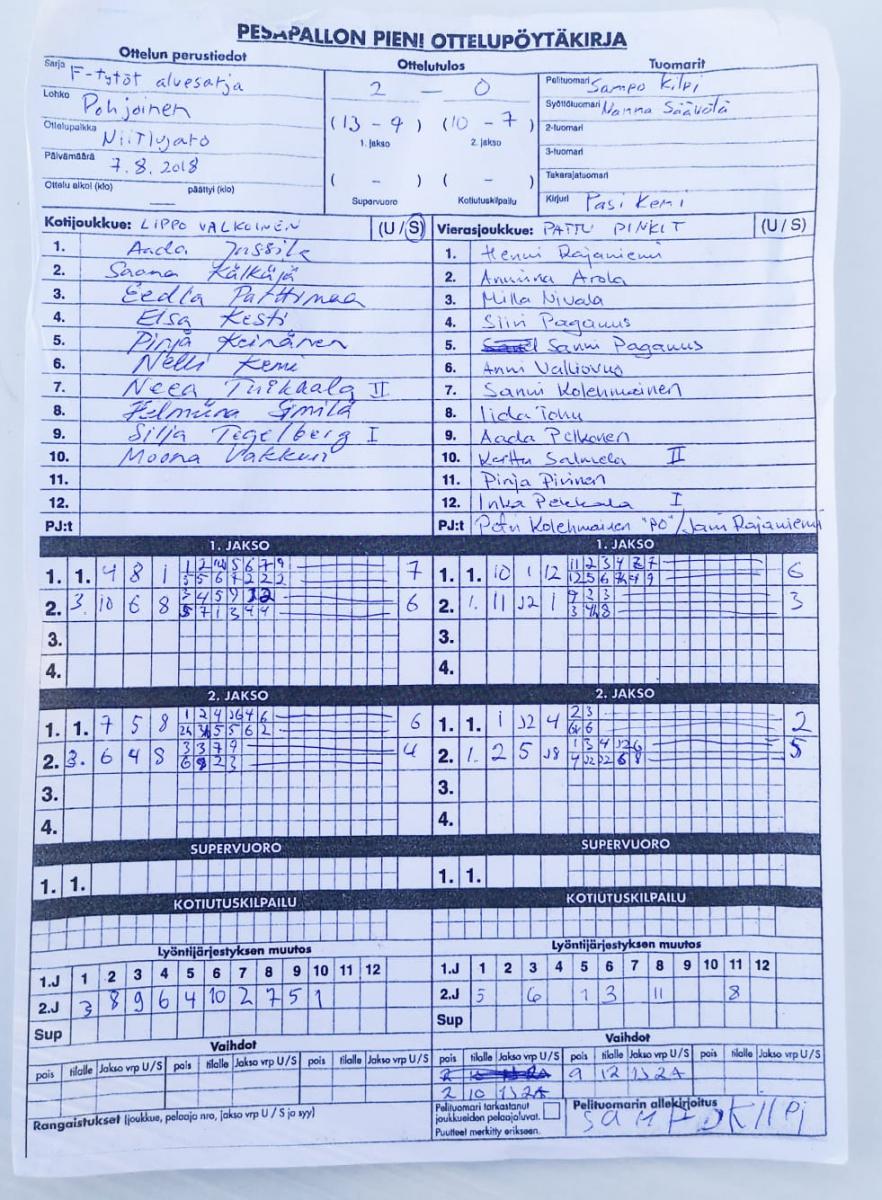 PESÄPALLON PIENI OTTELUPÖYTÄKIRJA
Ottelun perustiedot
Ottelutulos
Tuomarit
Sarja F-tytöt aluesarja
Lohko Pohjoinen
Ottelupaikka
Päivämäärä 7.8.2018
Ottelu alkoi (klo) — päättyi (klo)
2 — 0
(13 - 9) (10 - 7)
1. jakso 2. jakso
( - ) ( - )
Supervuoro Kotiutuskilpailu
Pelituomari Sampo Kilpi
Syöttötuomari Nanna Säävälä
2-tuomari
3-tuomari
Takarajatuomari
Kirjuri Pasi Kemi
Kotijoukkue: LIPPO VALKOINEN (U/S)
1. Aada Jussila
2. Saana Kälkäjä
3. Eedla Patthimaa
4. Elsa Kesti
5. Pinja Keinänen
6. Nelli Kemi
7. Neea II
8. Helmiina Similä
9. Silja Tegelberg I
10. Moona Vakkuri
11.
12.
PJ:t
Vierasjoukkue: PATTU PINKIT (U/S)
1. Henni Rajaniemi
2. Anniina Arola
3. Milla Nivala
4. Siiri Paganus
5. Sanni Paganus
6. Anni
7. Sanni Kolehmainen
8. Iida
9. Aada Pelkonen
10. Kerttu Salmela II
11. Pinja Pirinen
12. Inka Pekkala I
PJ:t Petri Kolehmainen "PO"/Jani Rajaniemi
1. JAKSO
1. 1. 4 8 1 7
2. 3. 10 6 8 6
3.
4.
1. JAKSO
1. 1. 10 1 12 6
2. 1. 11 12 1 3
3.
4.
2. JAKSO
1. 1. 7 5 8 6
2. 3. 6 4 8 4
3.
4.
2. JAKSO
1. 1. 1 12 4 2
2. 1. 2 5 5
3.
4.
SUPERVUORO
1. 1.
SUPERVUORO
1. 1.
KOTIUTUSKILPAILU
KOTIUTUSKILPAILU
Lyöntijärjestyksen muutos
1.J 1 2 3 4 5 6 7 8 9 10 11 12
2.J 3 8 9 6 4 10 2 7 5 1
Sup
Lyöntijärjestyksen muutos
1.J 1 2 3 4 5 6 7 8 9 10 11 12
2.J 5 6 1 3 11 8
Sup
Vaihdot
pois tilalle Jakso vrp U/S pois tilalle Jakso vrp U/S pois tilalle Jakso vrp U/S
Vaihdot
pois tilalle Jakso vrp U/S pois tilalle Jakso vrp U/S pois tilalle Jakso vrp U/S
9 12 1J2A
2 10 1J2A
Rangaistukset (joukkue, pelaaja nro, jakso vrp U/S ja syy)
Pelituomari tarkastanut
joukkueiden pelaajaluvat.
Puutteet merkitty erikseen.
Pelituomarin allekirjoitus
SAMPO KILPI